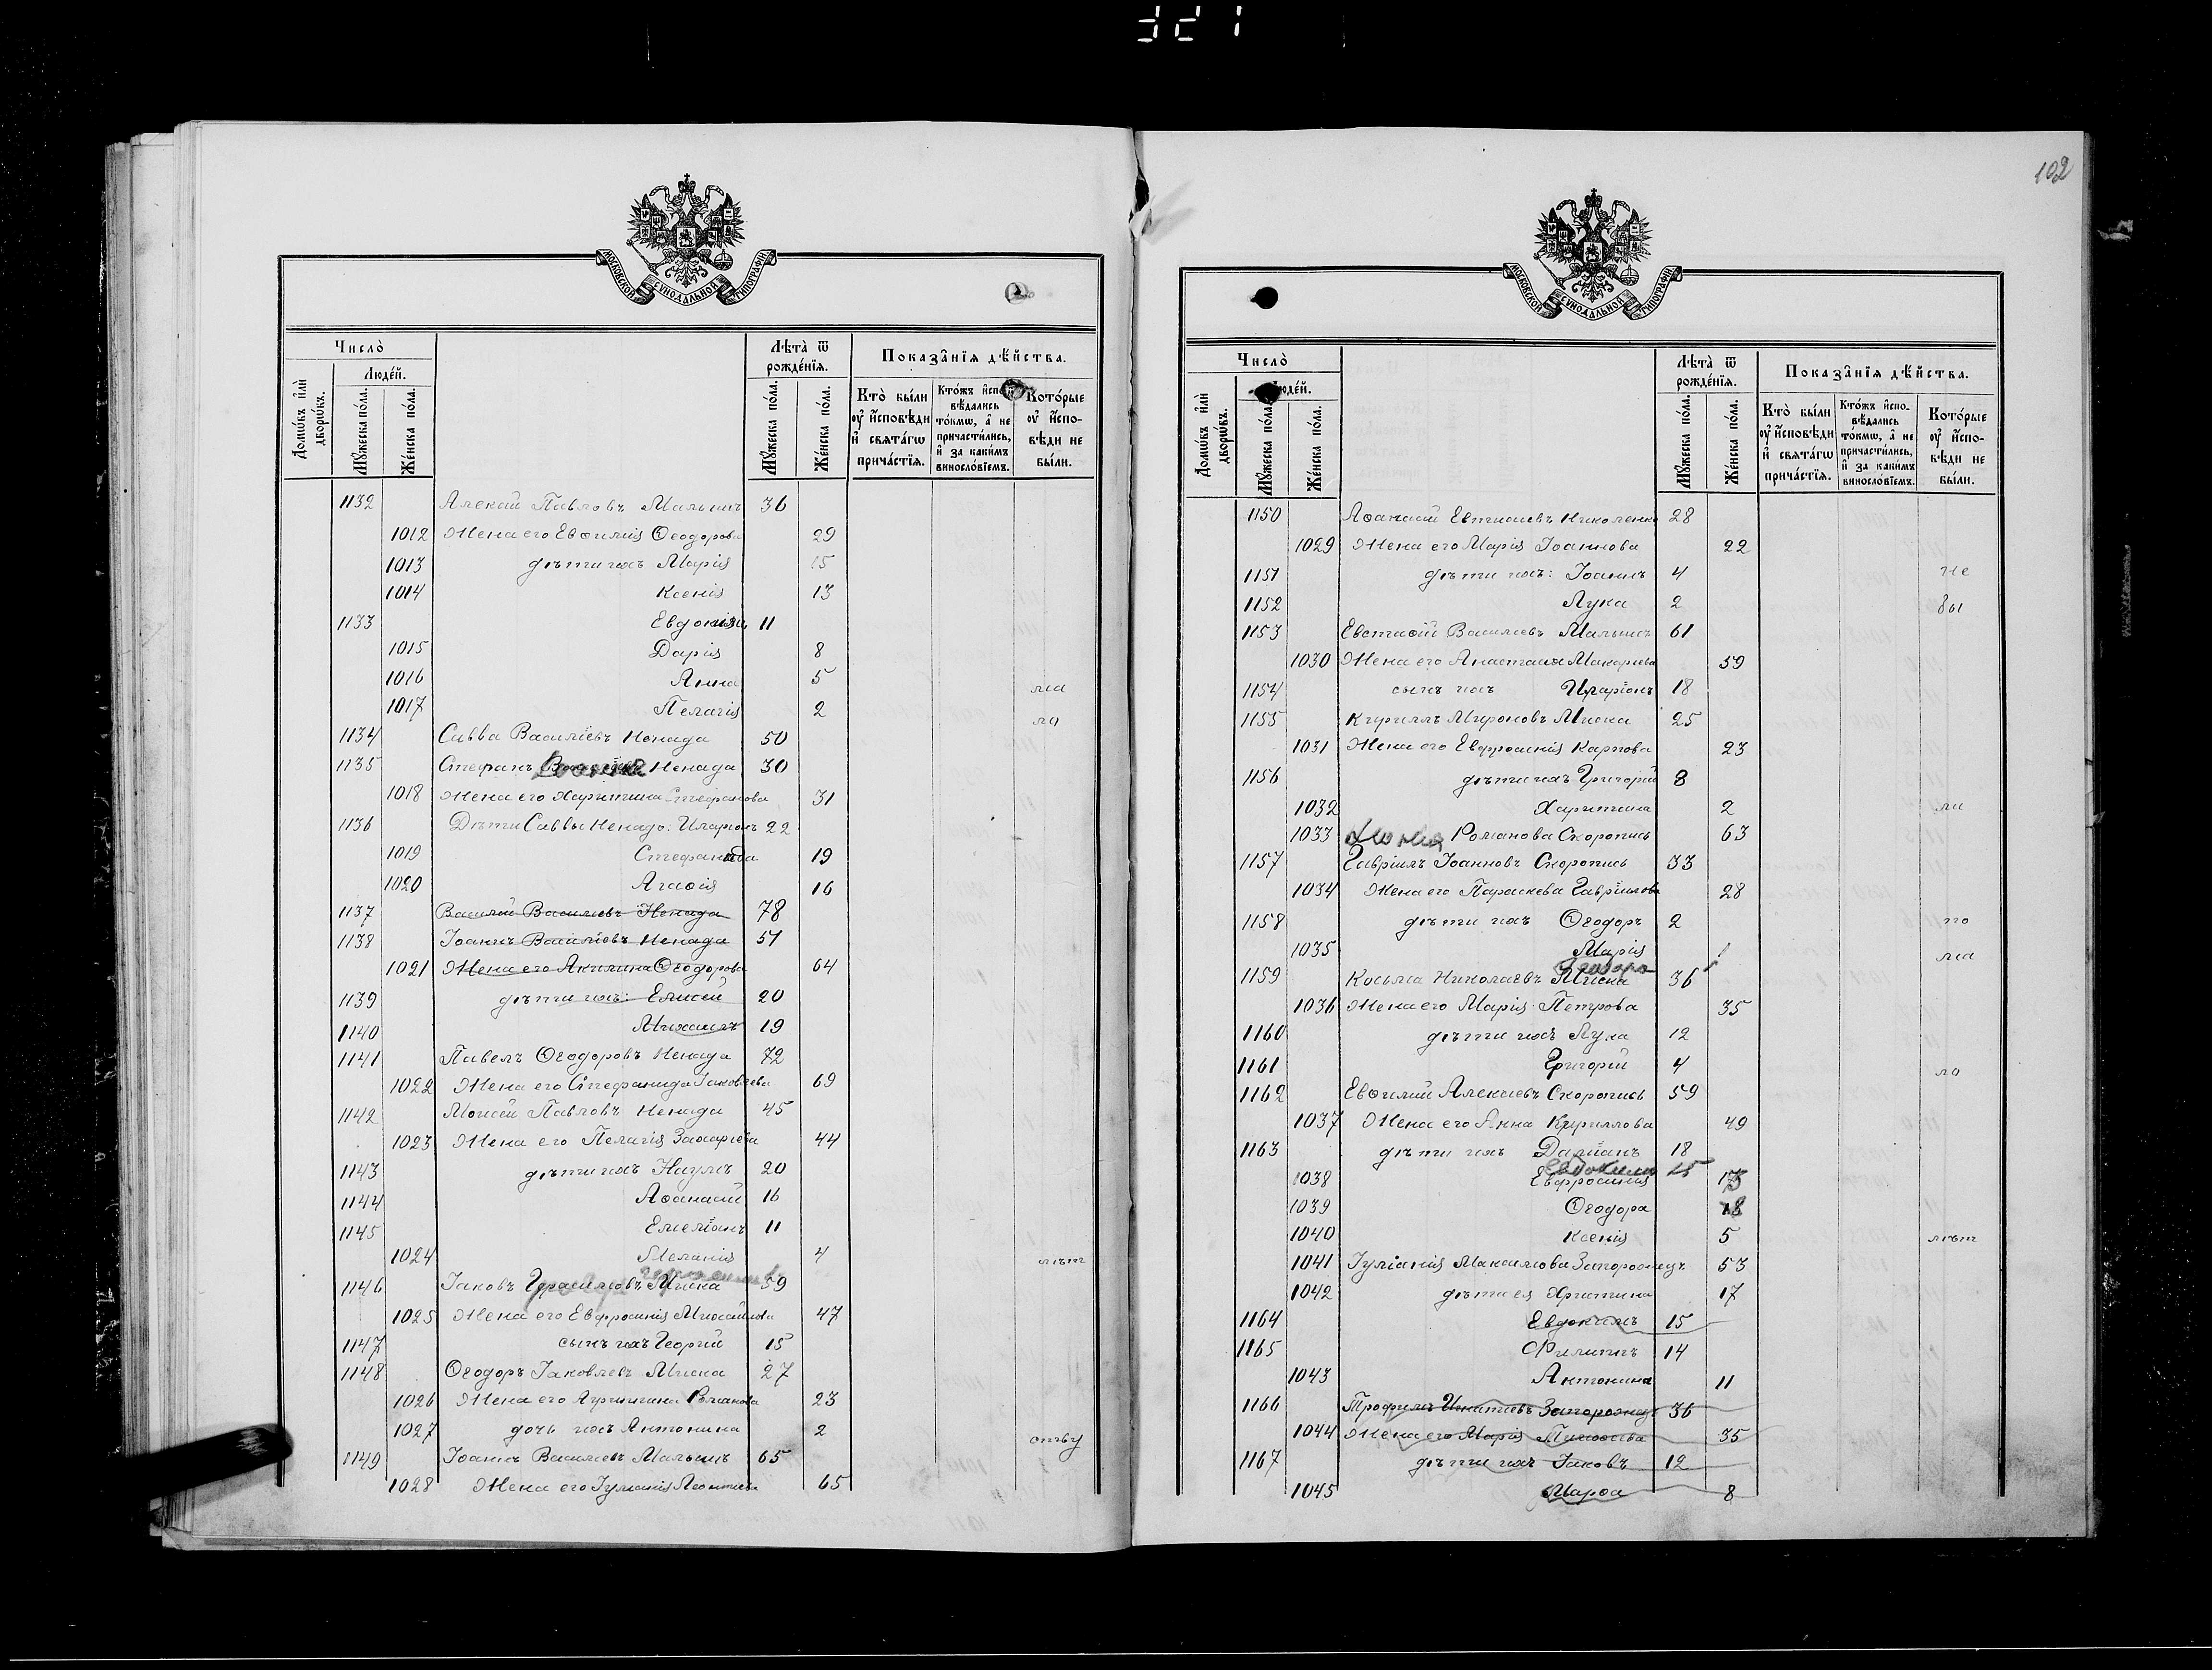 321
МОСКОВСКОЙ СѴНОДАЛЬНОЙ ТИПОГРАФІИ
Число̀
Людей.
Домѡвъ и҆лѝ дворѡвъ.
Мꙋжеска по́ла.
Же́нска по́ла.
Лѣта̀ ѿ рожде́нїѧ.
Мꙋжеска по́ла.
Же́нска по́ла.
Показа̑нїѧ дѣ́йства.
Кто̀ бы́ли ᲂу҆ и҆сповѣди и҆ свѧта́гѡ прича́стїѧ.
Кто́жъ и҆сповѣ́дались то́кмѡ, а҆ не причасти́лись, и҆ за каки́мъ виносло́вїемъ.
Кото́рые ᲂу҆ и҆сповѣди не бы́ли.
1132 Алексій Павловъ Малышъ 36
1012 Жена его Евѳимія Ѳеодорова 29
1013 дѣти ихъ Марія 15
1014 Ксенія 13
1133 11
1015 Дарія 8
1016 Анна 5 ма
1017 Пелагія 2 ло
1134 Савва Василіевъ Ненада 50
1135 Стефанъ Ненада 30
1018 Жена его Харитина Стефанова 31
1136 Дѣти Саввы Ненады: Иларіонъ 22
1019 19
1020 Агаѳія 16
1137 Василій Василіевъ Ненада 78
1138 Іоаннъ Василіевъ Ненада 51
1021 Жена его Акилина Ѳеодорова 64
1139 дѣти ихъ: Елисей 20
1140 Михаилъ 19
1141 Павелъ Ѳеодоровъ Ненада 72
1022 Жена его Стефанида Іаковлева 69
1142 Моисей Павловъ Ненада 45
1023 Жена его Пелагія Захаріева 44
1143 дѣти ихъ Наумъ 20
1144 Аѳанасій 16
1145 Емеліанъ 11
1024 Меланія 4 лѣт
1146 Іаковъ Миска 59
1025 Жена его Евфросинія 47
1147 сынъ ихъ Георгій 15
1148 Ѳеодоръ Іаковлевъ Миска 27
1026 Жена его 23
1027 дочь ихъ Антонина 2 ству
1149 Іоаннъ Василіевъ Малышъ 65
1028 Жена его Іуліанія Леонтіева 65
102
МОСКОВСКОЙ СѴНОДАЛЬНОЙ ТИПОГРАФІИ
Число̀
Людей.
Домѡвъ и҆лѝ дворѡвъ.
Мꙋжеска по́ла.
Же́нска по́ла.
Лѣта̀ ѿ рожде́нїѧ.
Мꙋжеска по́ла.
Же́нска по́ла.
Показа̑нїѧ дѣ́йства.
Кто̀ бы́ли ᲂу҆ и҆сповѣди и҆ свѧта́гѡ прича́стїѧ.
Кто́жъ и҆сповѣ́дались то́кмѡ, а҆ не причасти́лись, и҆ за каки́мъ виносло́вїемъ.
Кото́рые ᲂу҆ и҆сповѣди не бы́ли.
1150 Аѳанасій Николенко 28
1029 Жена его Марія Іоаннова 22
1151 дѣти ихъ: Іоаннъ 4 не
1152 Лука 2 бы
1153 Евстаѳій Василіевъ Малышъ 61
1030 Жена его Анастасія Макаріева 59
1154 сынъ ихъ Иларіонъ 18
1155 Кириллъ Мироновъ Миска 25
1031 Жена его Евфросинія Карпова 23
1156 дѣти ихъ Григорій 8
1032 Харитина 2 ли
1033 Романова Скоропись 63
1157 Гавріилъ Іоанновъ Скоропись 33
1034 Жена его Параскева Гавріилова 28
1158 дѣти ихъ Ѳеодоръ 2 по
1035 Марія 1 ма
1159 Косьма Николаевъ Миска 36
1036 Жена его Марія Петрова 35
1160 дѣти ихъ Лука 12
1161 Григорій 4 ло
1162 Евѳимій Алексіевъ Скоропись 59
1037 Жена его Анна Кириллова 49
1163 дѣти ихъ Даміанъ 18
1038 Евфросинія
1039 Ѳеодора
1040 Ксенія 5 лѣт
1041 Іуліанія Максимова Запорожецъ 53
1042 дѣти ея Христина 17
1164 Евдокимъ 15
1165 Филиппъ 14
1043 Антонина 11
1166 Трофимъ Игнатіевъ Запорожецъ 36
1044 Жена его Марія 35
1167 дѣти ихъ Іаковъ 12
1045 Марѳа 8